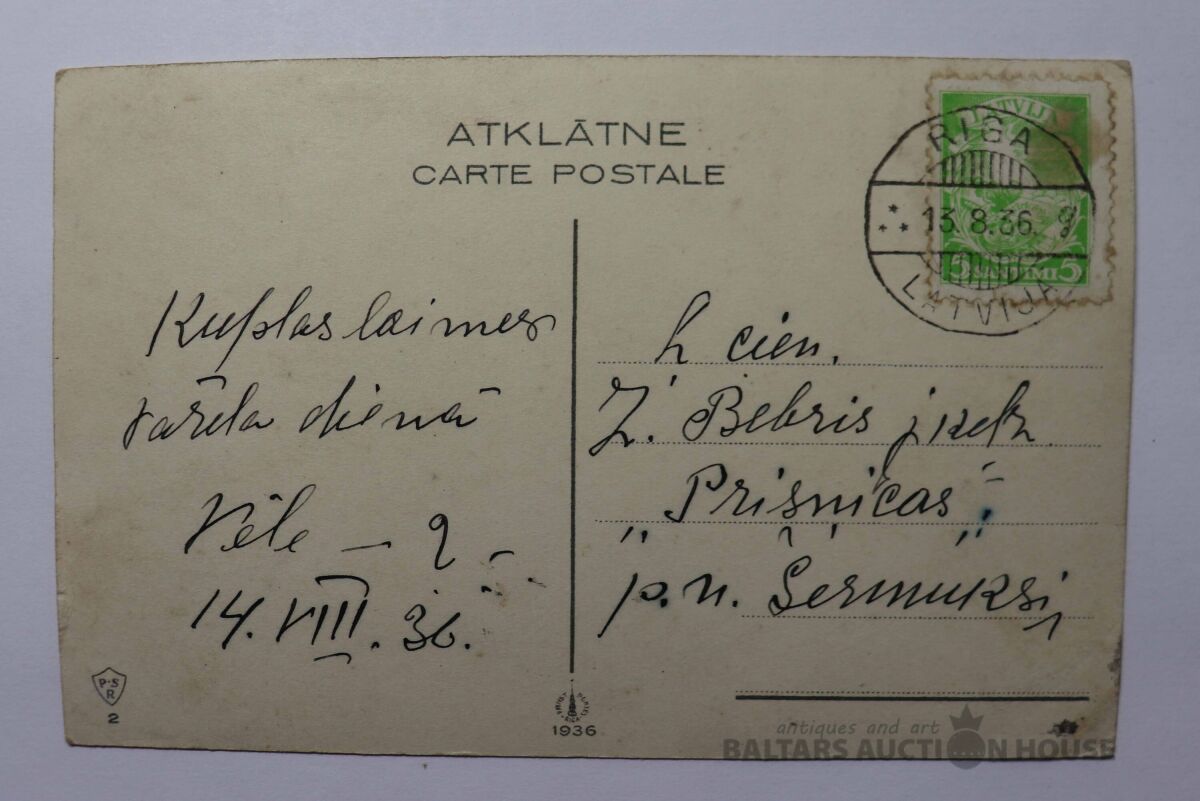 ATKLĀTNE
CARTE POSTALE
LATVIJA
RIGA
13. 8.36. 9
LATVIJA
5 SANTIMI 5
Kuplas laimes
vārda dienā
Vēle — 2 —
14. VIII. 36.
P.S
R
2
1936
L cien.
Z. Bebris j. kdz
"Prisnicas"
p. n. Sērmukši,
antiques and art
BALTARS AUCTION HOUSE